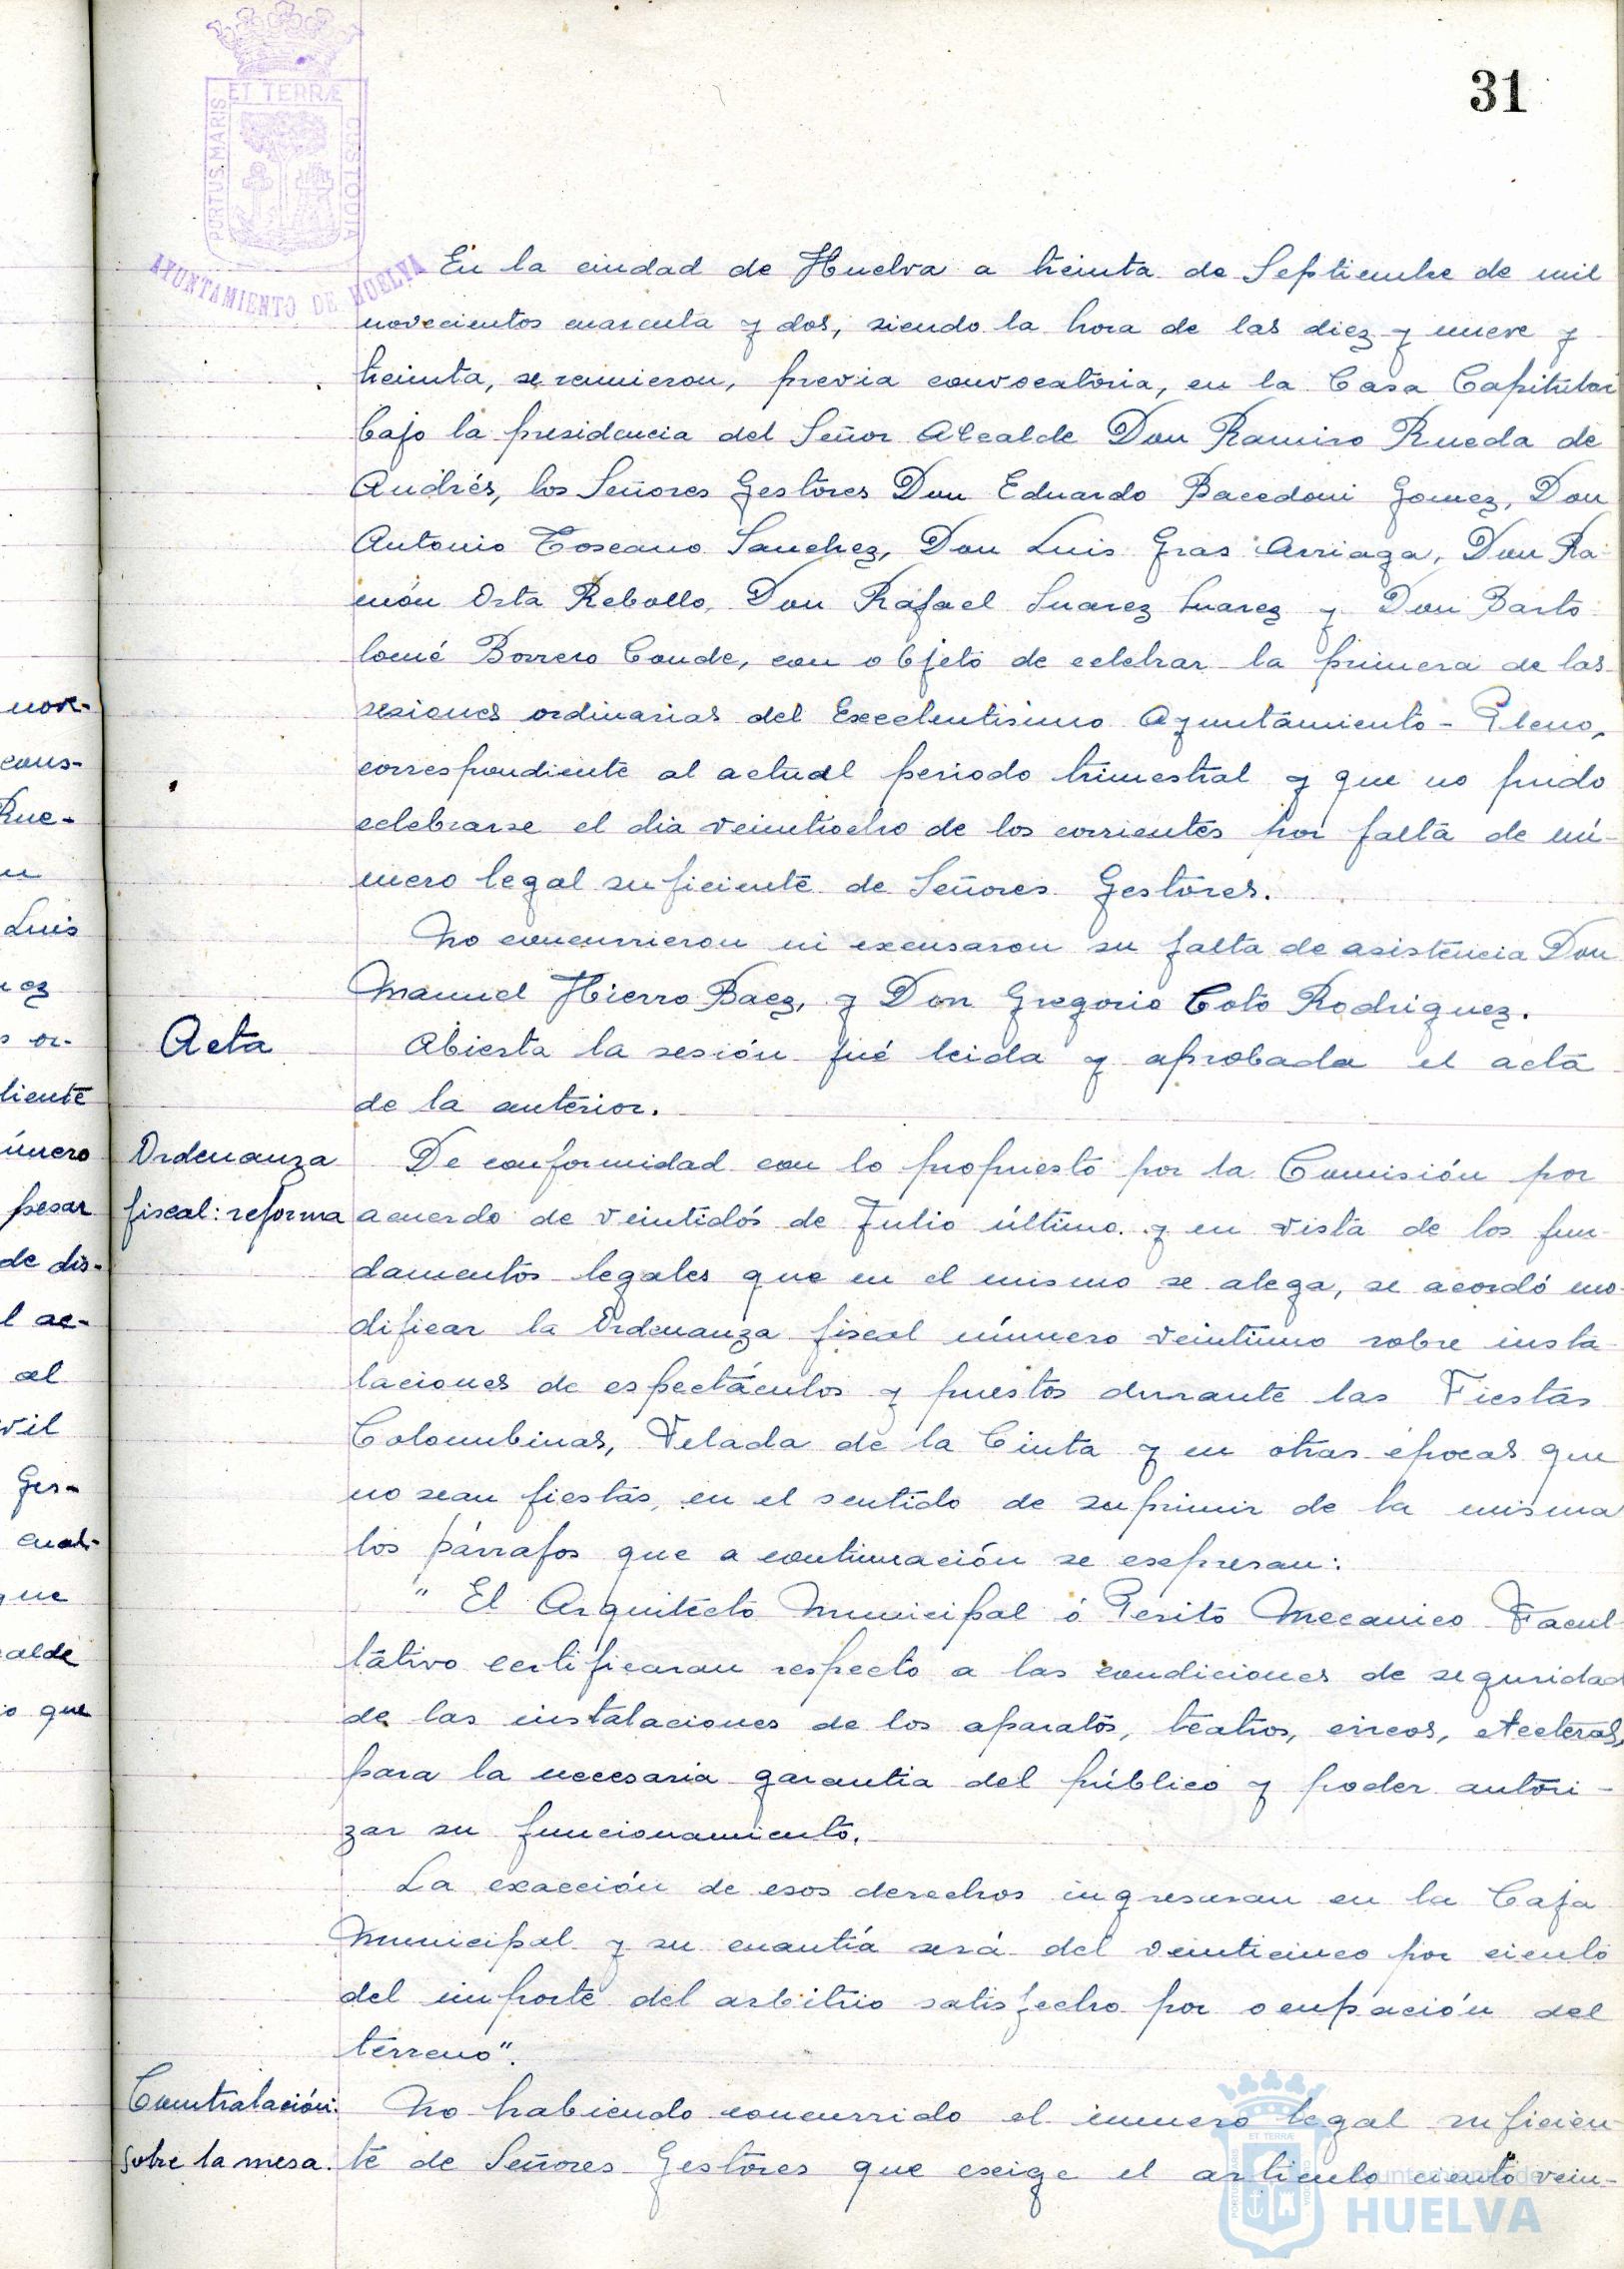 31
PORTUS MARIS ET TERRÆ CUSTODIA
AYUNTAMIENTO DE HUELVA
En la ciudad de Huelva a treinta de Septiembre de mil
novecientos cuarenta y dos, siendo la hora de las diez y nueve y
treinta, se reunieron, previa convocatoria, en la Casa Capitular
bajo la presidencia del Señor Alcalde Don Ramiro Rueda de
Andrés, los Señores Gestores Don Eduardo Bacedoni Gomez, Don
Antonio Toscano Sanchez, Don Luis Gras Arriaga, Don Ra-
món Orta Rebollo, Don Rafael Suarez Suarez y Don Barto
lomé Borrero Conde, con objeto de celebrar la primera de las
sesiones ordinarias del Excelentisimo Ayuntamiento-Pleno,
correspondiente al actual periodo trimestral y que no pudo
celebrarse el dia veintiocho de los corrientes por falta de nú-
mero legal suficiente de Señores Gestores.
No concurrieron ni excusaron su falta de asistencia Don
Manuel Hierro Baez, y Don Gregorio Coto Rodriguez.
Acta
Abierta la sesión fué leida y aprobada el acta
de la anterior.
Ordenanza
fiscal: reforma
De conformidad con lo propuesto por la Comisión por
acuerdo de veintidós de Julio último y en vista de los fun-
damentos legales que en el mismo se alega, se acordó mo-
dificar la Ordenanza fiscal número veintiuno sobre insta-
laciones de espectáculos y puestos durante las Fiestas
Colombinas, Velada de la Cinta y en otras épocas que
no sean fiestas, en el sentido de suprimir de la misma
los párrafos que a continuación se expresan:
" El Arquitecto Municipal ó Perito Mecanico Facul
tativo certificaran respecto a las condiciones de seguridad
de las instalaciones de los aparatos, teatros, circos, etceteras,
para la necesaria garantia del público y poder autori-
zar su funcionamiento.
La exacción de esos derechos ingresaran en la Caja
Municipal y su cuantía será del veinticinco por ciento
del importe del arbitrio satisfecho por ocupación del
terreno".
Contratación:
sobre la mesa.
No habiendo concurrido el número legal suficien
te de Señores Gestores que exige el articulo ciento vein-
nove-
cons-
Rue-
Luis
ez
s or-
diente
úmero
pesar
de dis-
l ac-
al
vil
Ges-
cual-
que
calde
io que
Ayuntamiento de
HUELVA